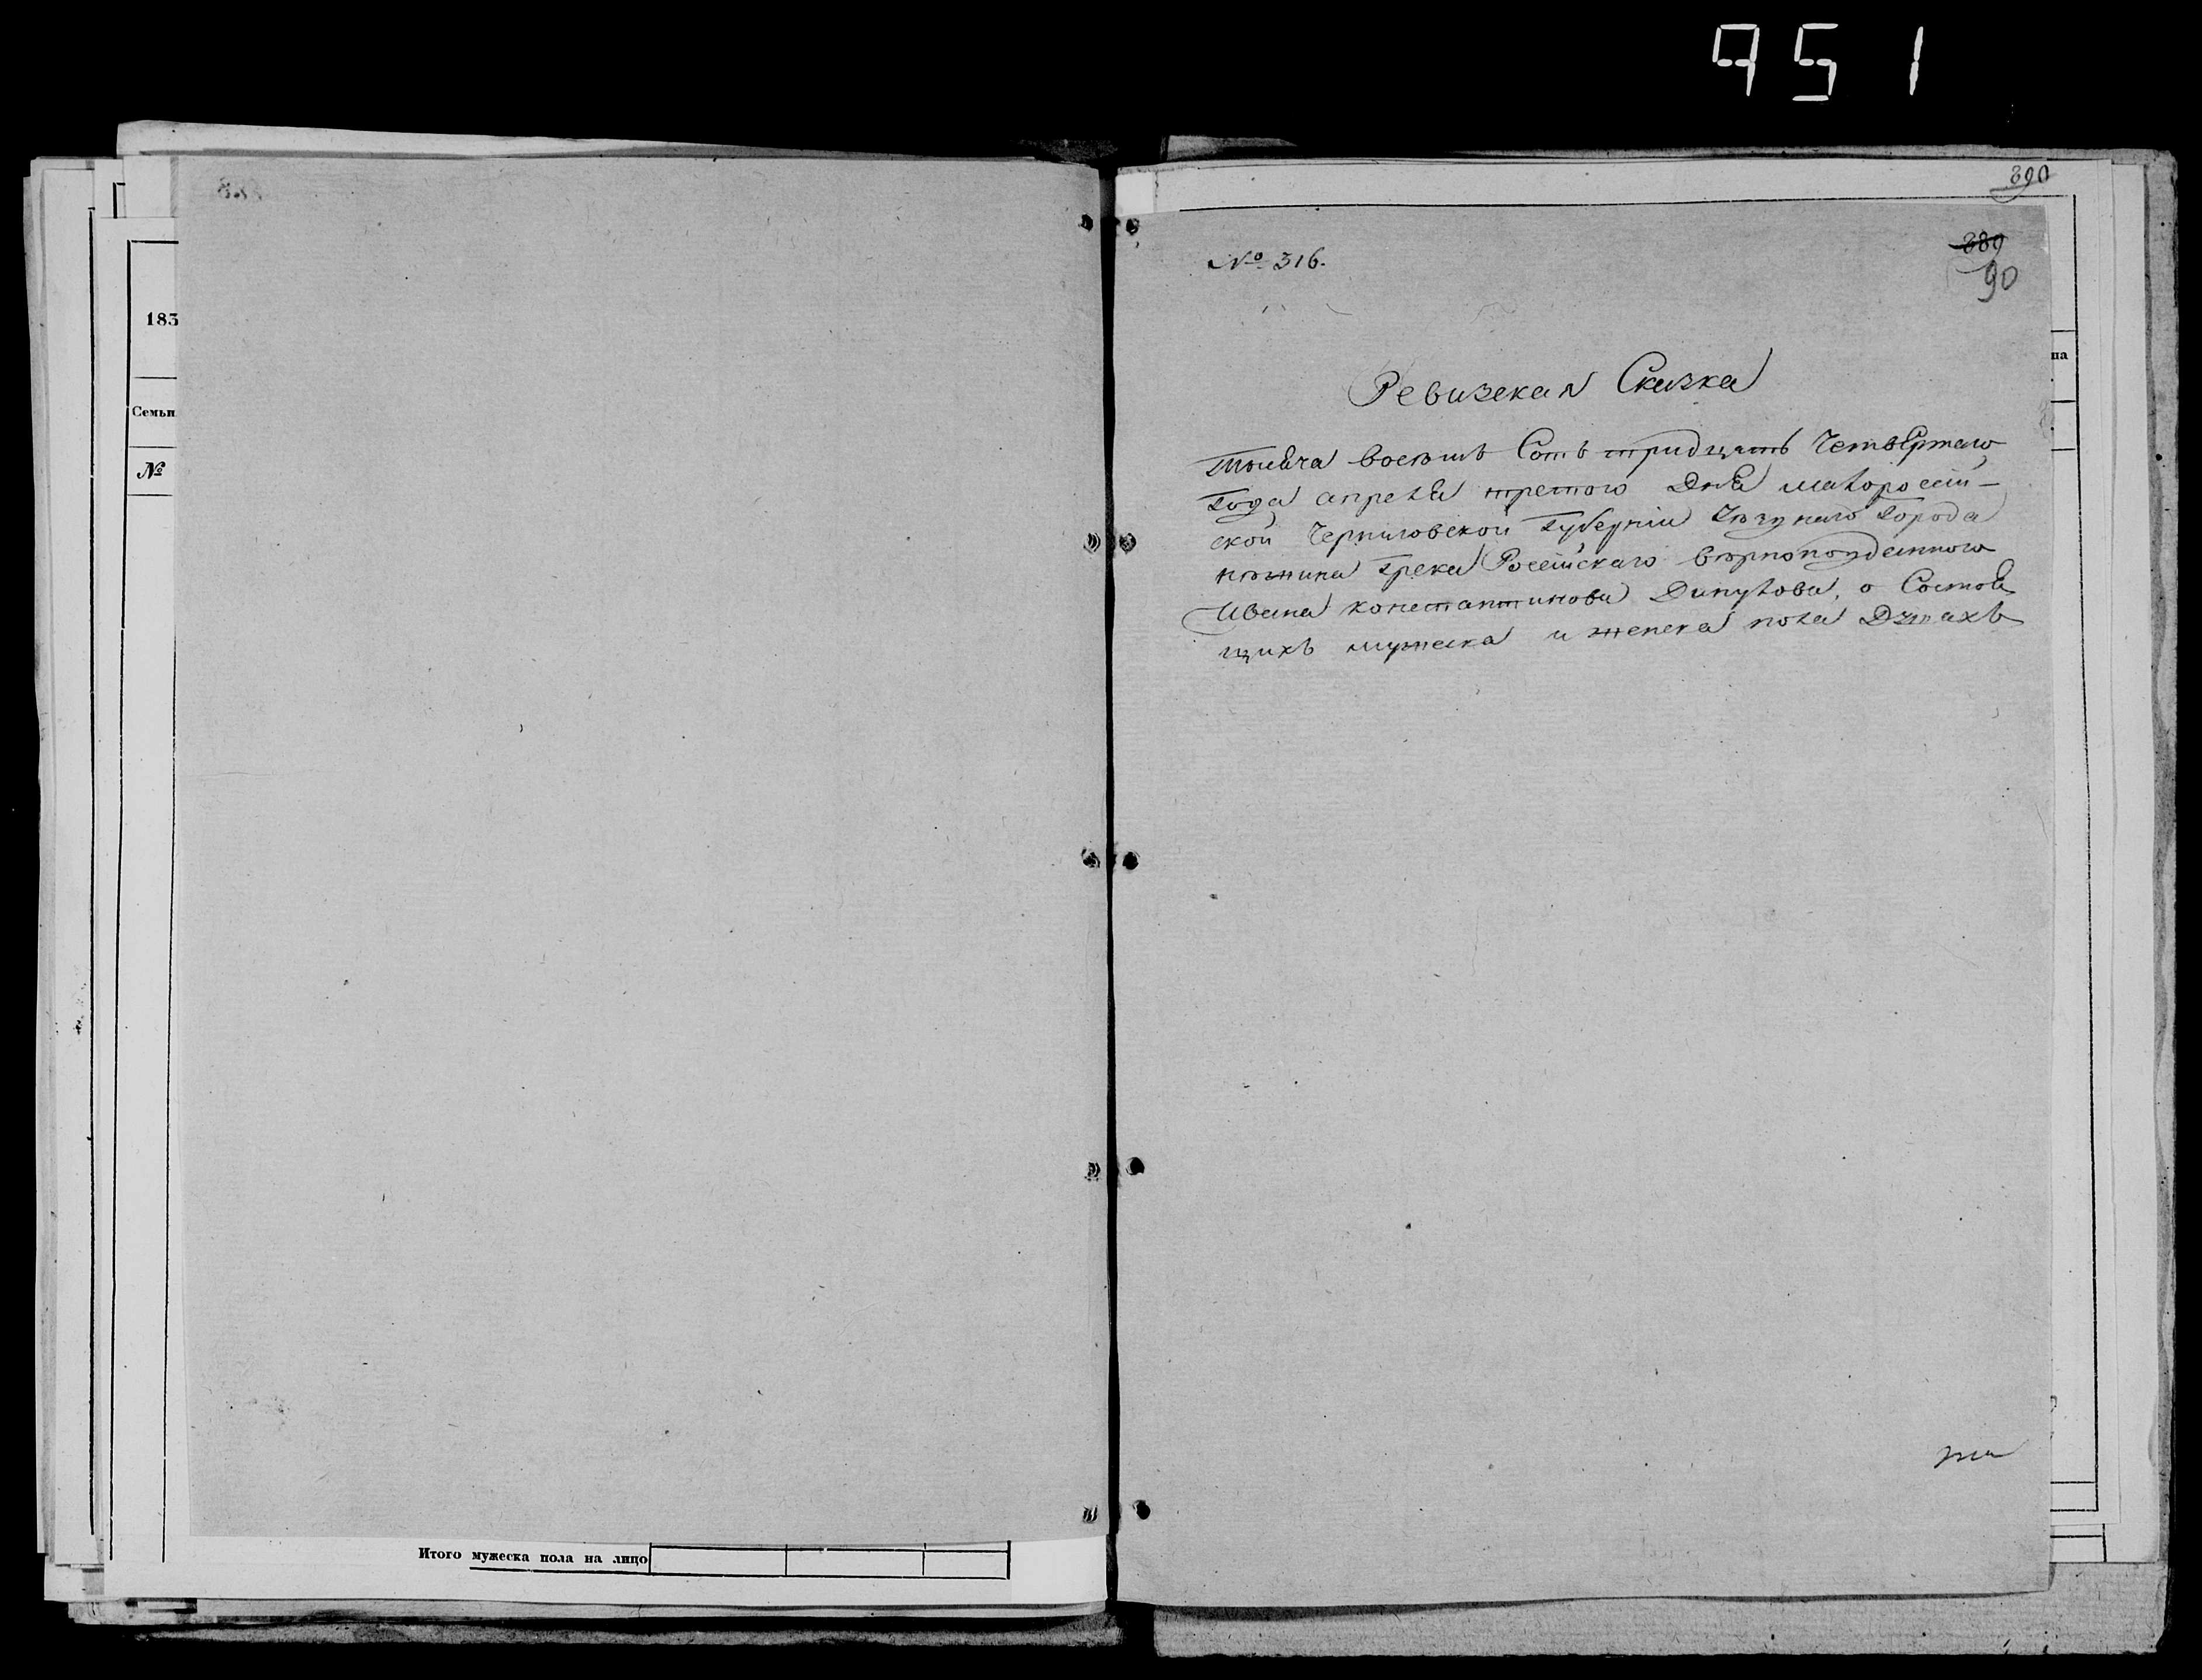 951
183
Семьи
№
Итого мужеска пола на лицо
390
№ 316.
389
90
па
Ревизская Сказка
Тысяча восемь Сотъ тридцять Четвертаго
Года апреля третого Дня малоросій-
ской Черниговской Губерніи Города
нѣжина Грека Росейскаго вѣрноподданного
Ивана константинова о Состоя
щихъ мужеска и женска пола Душахъ